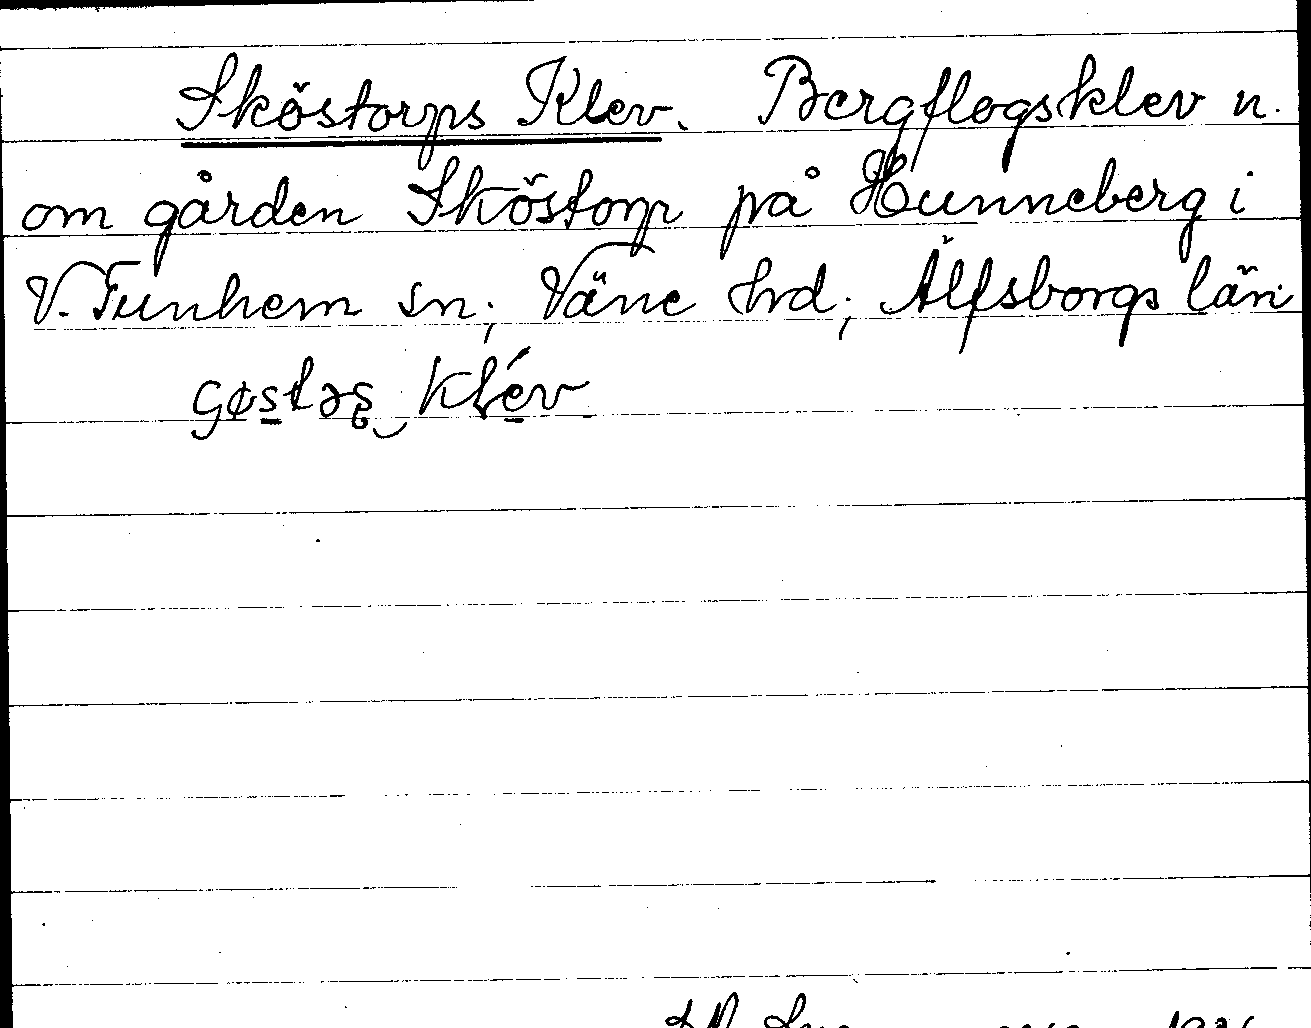 Sköstorps Klev. Bergflogsklev n.
om gården Sköstorp på Hunneberg i
V. Tunhem sn; Väne hd; Älfsborgs län